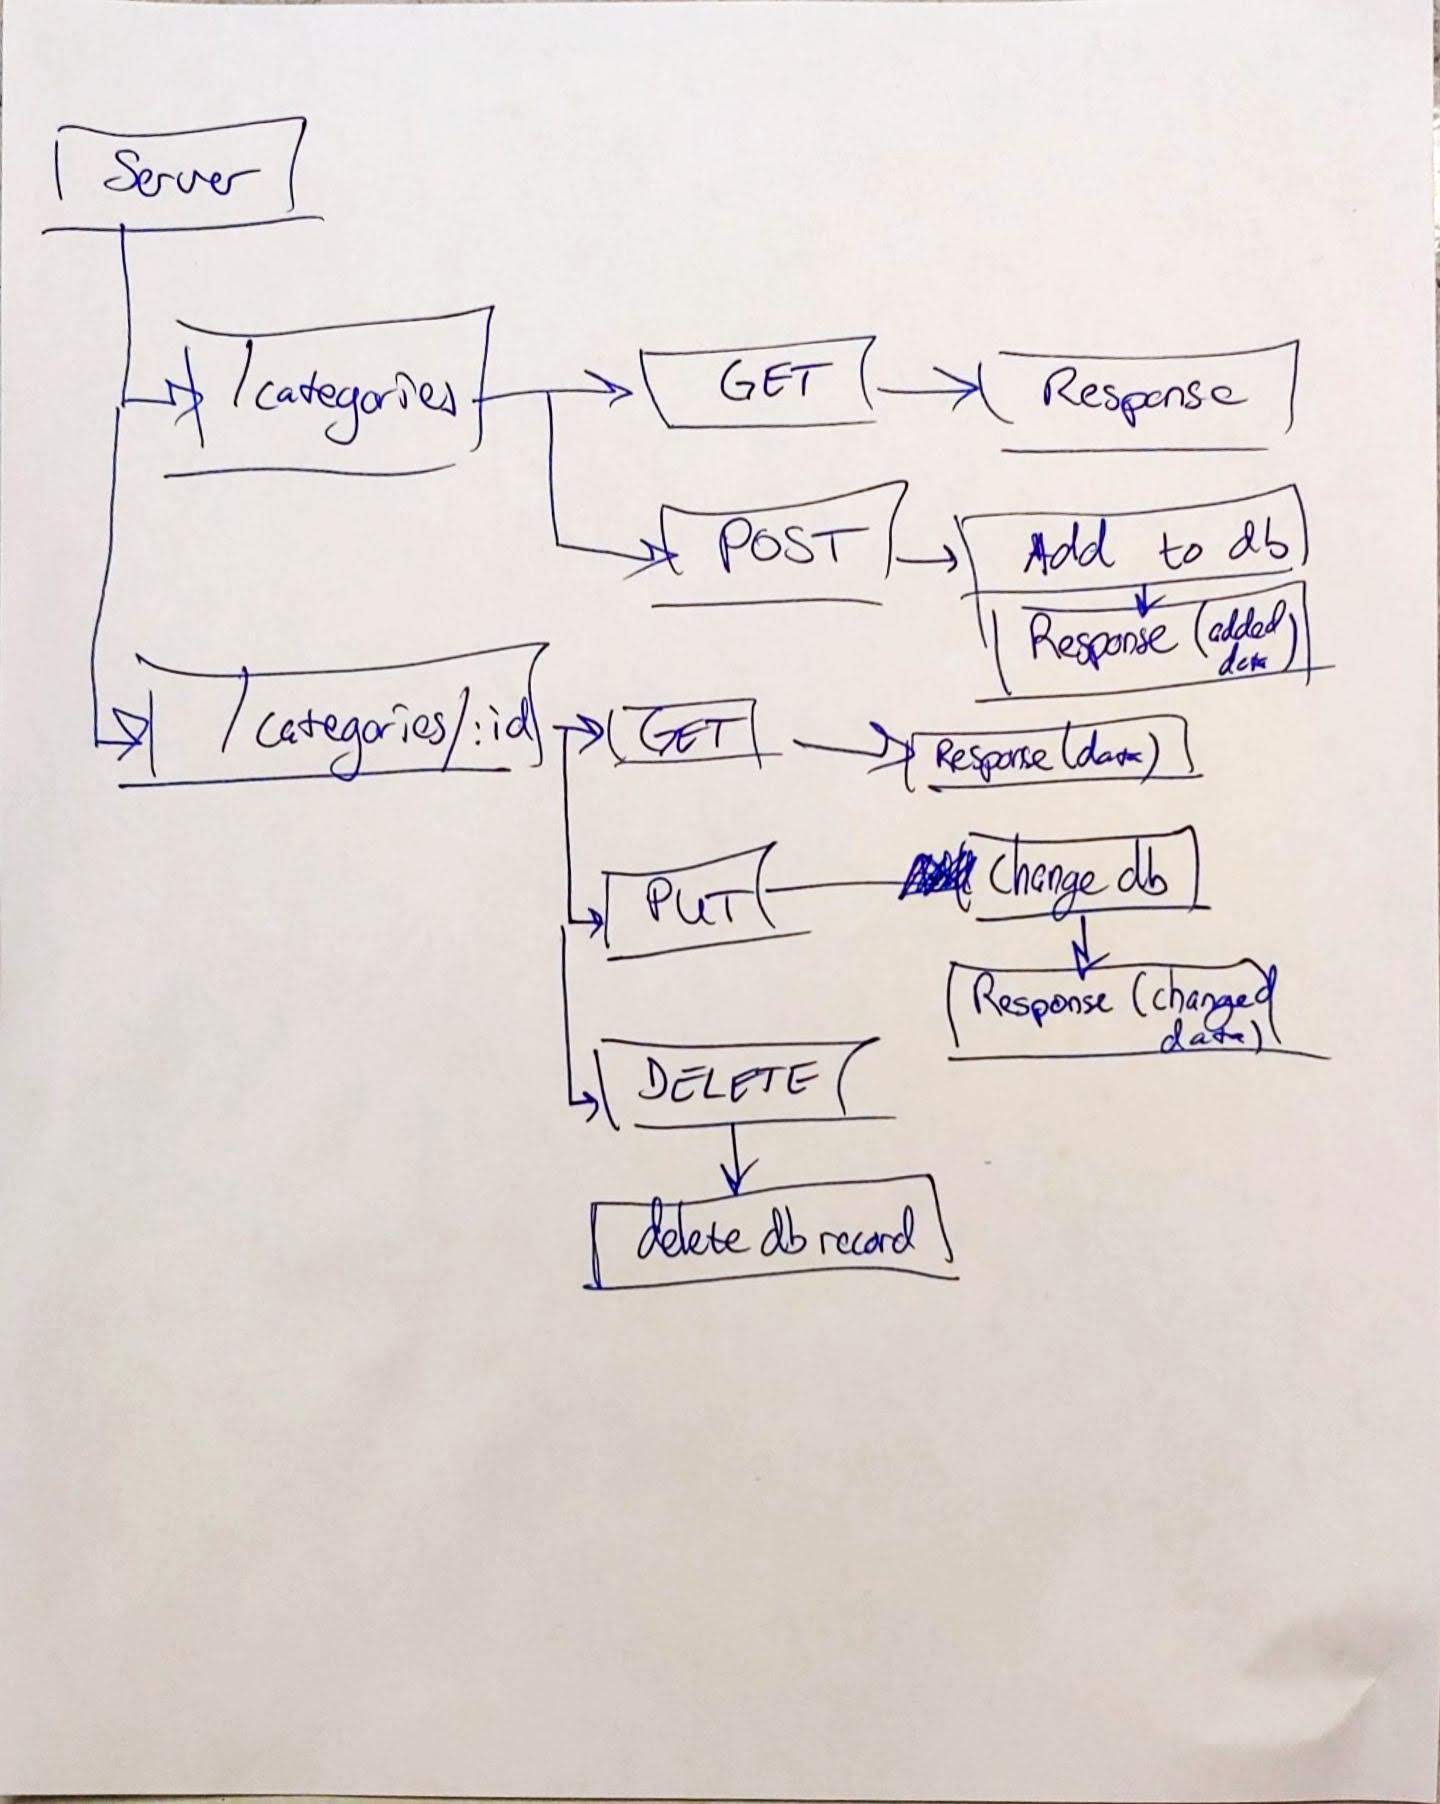 Server
/categories
GET
Response
POST
Add to db
Response (added
data)
/categories/:id
GET
Response (data)
PUT
change db
Response (changed
data)
DELETE
delete db record